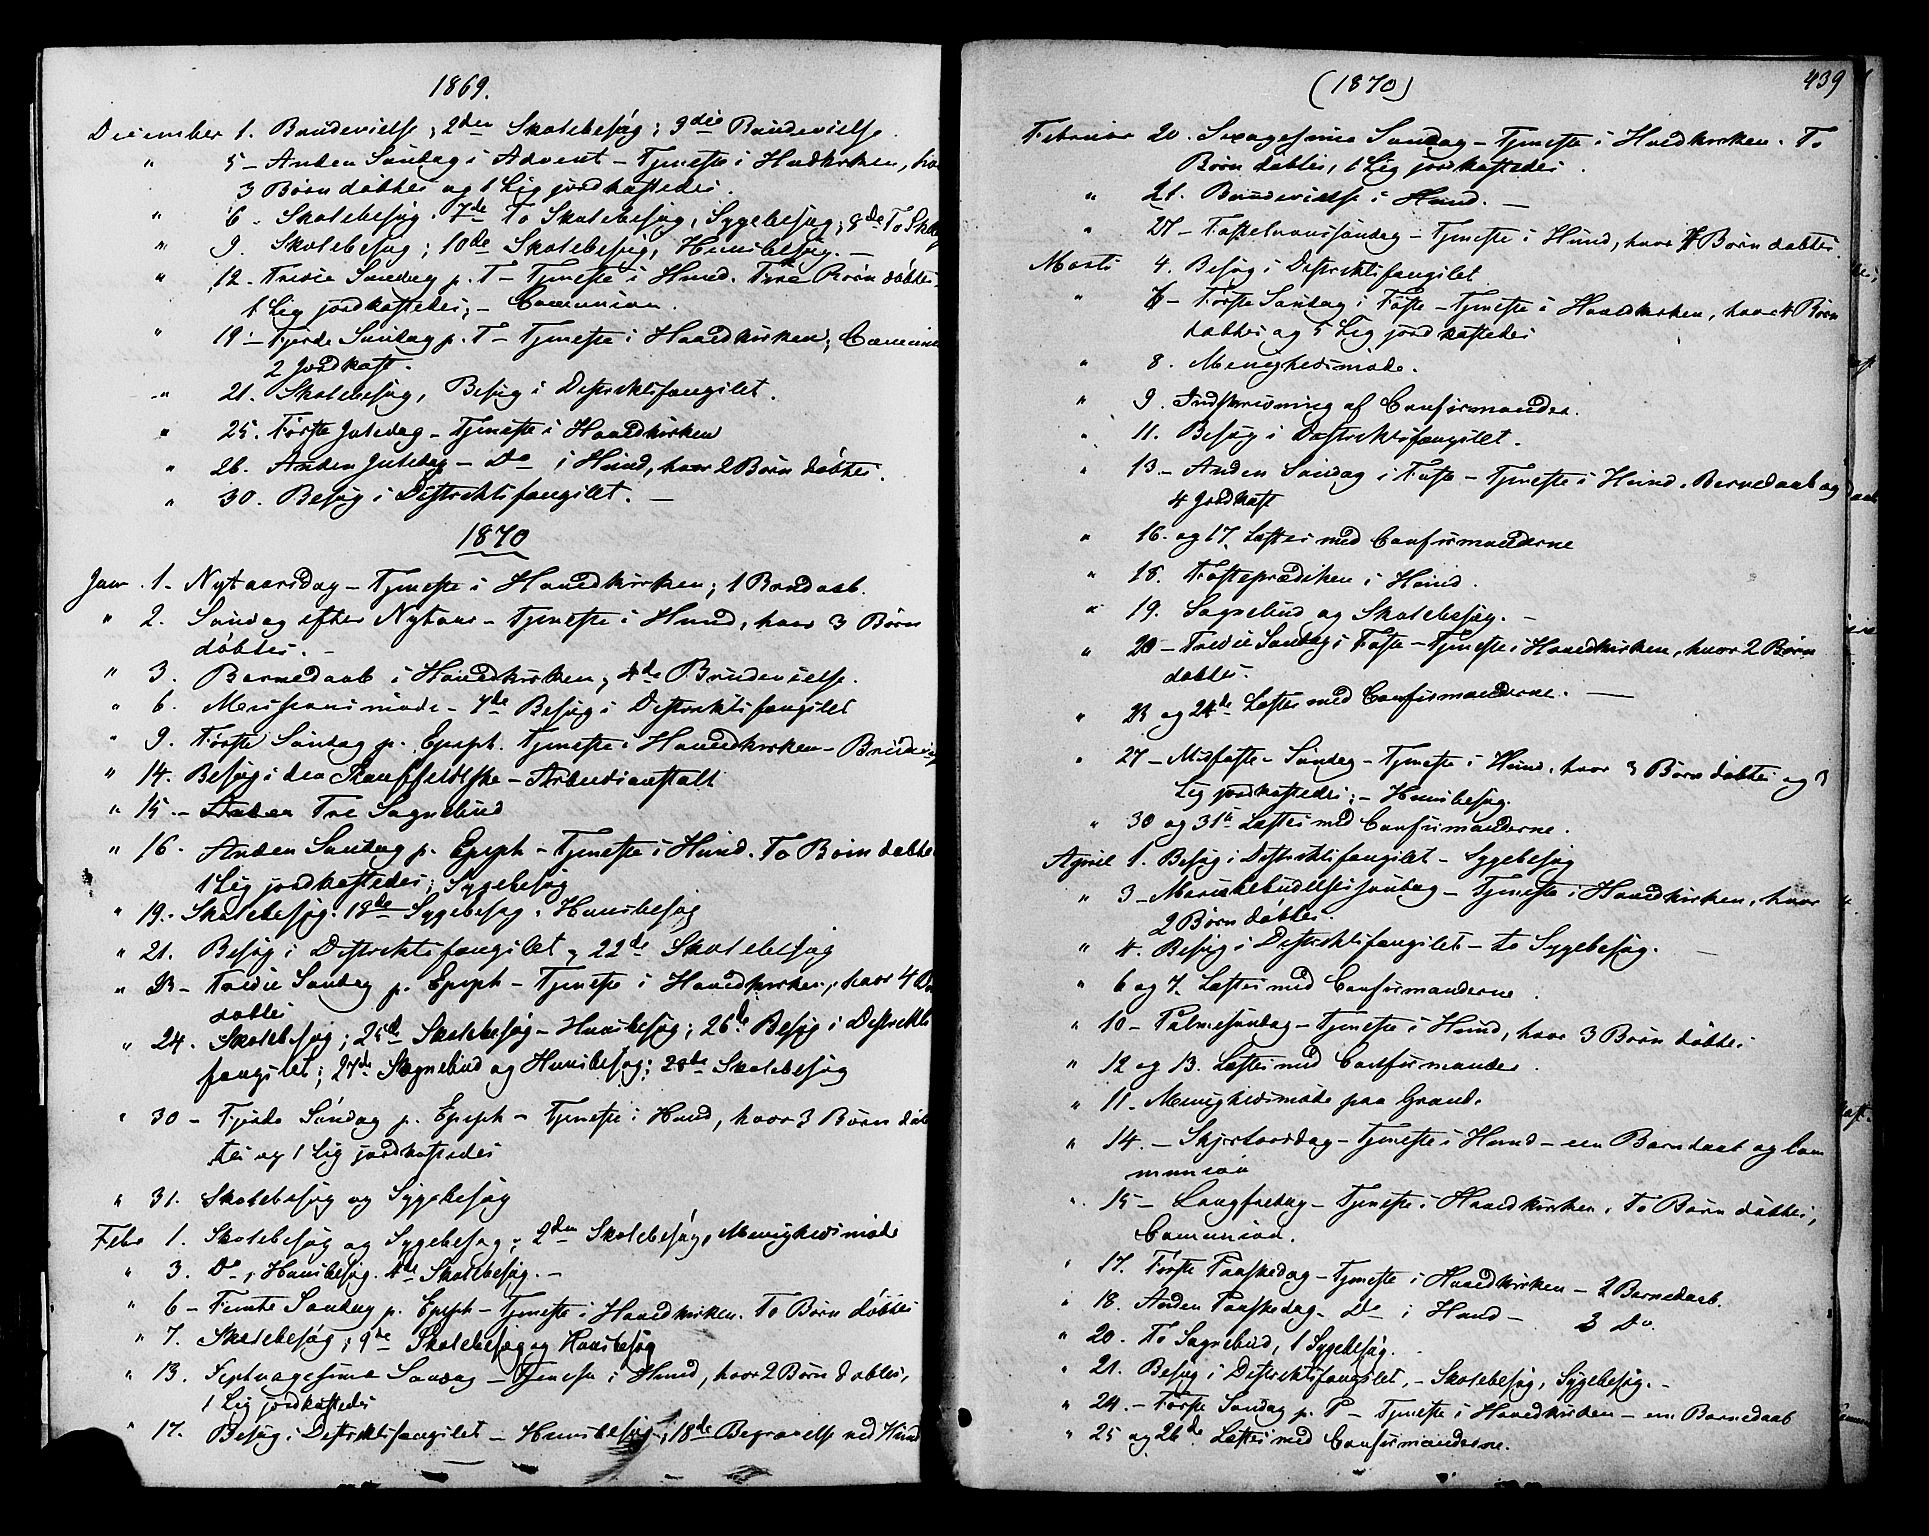 1869.
December 1. Brudevielse; 2den Skolebesøg; 3die Brudevielse.
" 5 – Anden Søndag i Advent – Tjeneste i Hovedkirken, hvor
3 Børn døbtes og 1 Lig jordkastedes.
" 6 – Skolebesøg. 7de To Skolebesøg, Sygebesøg; 8de To Skoleb
" 9. Skolebesøg; 10de Skolebesøg, Huusbesøg. –
" 12. Tredie Søndag p. T – Tjeneste i Hund. Fire Børn døbtes.
1 Lig jordkastedes; – Communion.
" 19 – Fjerde Søndag p. T – Tjeneste i Hovedkirken; Commun
2 Jordkast.
" 21. Skolebesøg, Besøg i Distriktsfængslet.
" 25. Første Juledag – Tjeneste i Hovedkirken
" 26. Anden Juledag – Do i Hund, hvor 2 Børn døbtes.
" 30. Besøg i Distriktsfængslet. –
1870
Janr. 1 – Nytaarsdag – Tjeneste i Hovedkirken; 1 Barnedaab.
" 2. Søndag efter Nytaar – Tjeneste i Hund, hvor 3 Børn
døbtes. –
" 3. Barnedaab i Hovedkirken; 4de Brudevielse.
" 6. Missionsmøde – 7de Besøg i Distriktsfængslet
" 9. Første Søndag p. Epiph. Tjeneste i Hovedkirken – Brudevi
" 14. Besøg i den Arbeidsanstalt
" 15 – Tre Sognebud
" 16. Anden Søndag p. Epiph – Tjeneste i Hund. To Børn døbte
1 Lig jordkastedes; Sygebesøg
" 19. Skolebesøg. 18de Sygebesøg. Huusbesøg
" 21. Besøg i Distriktsfængslet, 22de Skolebesøg
" 23 – Tredie Søndag p. Epiph – Tjeneste i Hovedkirken, hvor 4 B
døbtes
" 24. Skolebesøg; 25de Skolebesøg – Huusbesøg; 26de Besøg i Distrikts
fængslet; 27de Sognebud og Huusbesøg; 28de Skolebesøg
" 30 – Fjerde Søndag p. Epiph – Tjeneste i Hund, hvor 3 Børn døb
tes og 1 Lig jordkastedes
" 31. Skolebesøg og Sygebesøg
Febr 1. Skolebesøg og Sygebesøg; 2den Skolebesøg, Menighedsmøde
" 3. Do, Huusbesøg. 4de Skolebesøg. –
" 6 – Femte Søndag p. Epiph – Tjeneste i Hovedkirken. To Børn døbtes
" 7. Skolebesøg; 9de Skolebesøg og Huusbesøg
" 13. Septuagesima Søndag – Tjeneste i Hund, hvor 2 Børn døbtes,
1 Lig jordkastedes
" 17. Besøg i Distriktsfængslet – Huusbesøg; 18de Begravelse ved Hund
(1870)
439
Februar 20. Sexagesima Søndag – Tjeneste i Hovedkirken. To
Børn døbtes, 1 Lig jordkastedes.
" 21. Brudevielse i Hund. –
" 27 – Fastelavnssøndag – Tjeneste i Hund, hvor 4 Børn døbtes.
Marts 4. Besøg i Distriktsfængslet
" 6 – Første Søndag i Faste – Tjeneste i Hovedkirken, hvor 4 Børn
døbtes og 5 Lig jordkastedes
" 8. Menighedsmøde.
" 9. Indskrivning af Confirmander.
" 11. Besøg i Distriktsfængslet.
" 13 – Anden Søndag i Faste – Tjeneste i Hund. Barnedaab og
4 Jordkast
" 16. og 17. Læstes med Confirmanderne
" 18. Fasteprædiken i Hund.
" 19. Sognebud og Skolebesøg. –
" 20 – Tredie Søndag i Faste – Tjeneste i Hovedkirken, hvor 2 Børn
døbtes.
" 23 og 24de Læstes med Confirmanderne. –
" 27 – Midfaste – Søndag – Tjeneste i Hund, hvor 3 Børn døbtes og 3
Lig jordkastedes; – Huusbesøg.
" 30 og 31te Læstes med Confirmanderne.
April 1. Besøg i Distriktsfængslet – Sygebesøg
" 3 – Mariæbebudelsessøndag – Tjeneste i Hovedkirken, hvor
2 Børn døbtes.
" 4. Besøg i Distriktsfængslet – to Sygebesøg. –
" 6 og 7. Læstes med Confirmanderne.
" 10 – Palmesøndag – Tjeneste i Hund, hvor 3 Børn døbtes
" 12 og 13. Læstes med Confirmander.
" 11. Menighedsmøde paa Grand.
" 14. – Skjærtorsdag – Tjeneste i Hund – een Barnedaab og Com
munion
" 15 – Langfredag – Tjeneste i Hovedkirken. To Børn døbtes,
Communion.
" 17. Første Paaskedag – Tjeneste i Hovedkirken – 2 Barnedaab.
" 18. Anden Paaskedag – Do i Hund – 3 Do.
" 20. To Sognebud, 1 Sygebesøg.
" 21. Besøg i Distriktsfængslet, – Skolebesøg, Sygebesøg. –
" 24. – Første Søndag p. P – Tjeneste i Hovedkirken – en Barnedaab
" 25 og 26de Læstes med Confirmanderne.